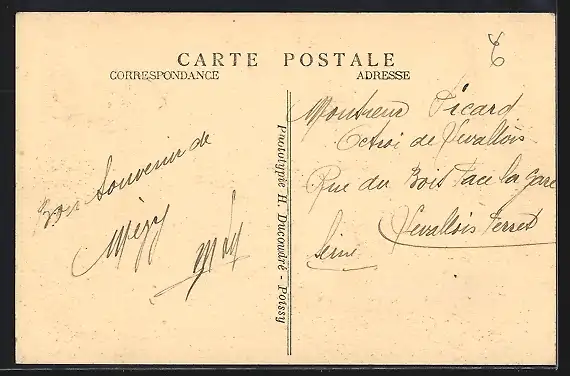 CARTE POSTALE
CORRESPONDANCE
ADRESSE
Bon Souvenir de
Mézy
Phototypie H. Ducoudré - Poissy
Monsieur Picard
Octroi de Levallois
Rue du Bois face la gare
Levallois Perret
Seine